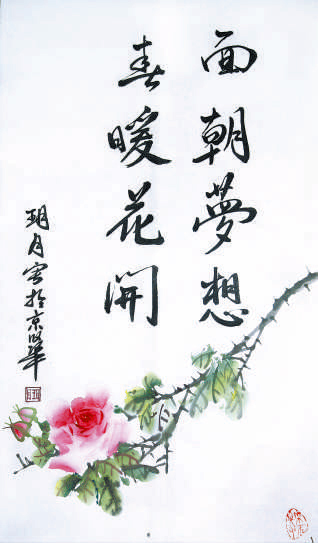 面朝夢想
春暖花開
玥月書於京華